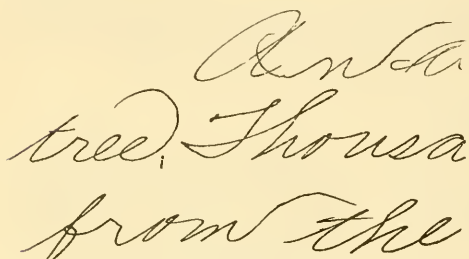 tree. Thousa
from the